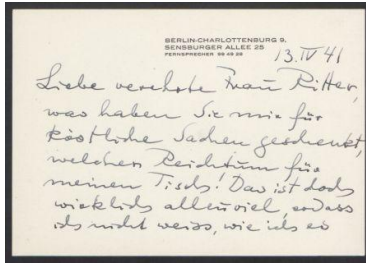 BERLIN-CHARLOTTENBURG 9.
SENSBURGER ALLEE 25
FERNSPRECHER 99 49 29
13. IV 41
Liebe verehrte Frau Ritter,
was haben Sie mir für
köstliche Sachen geschenkt,
welchen Reichtum für
meinen Tisch! Das ist doch
wirklich allzuviel, sodass
ich nicht weiss, wie ich es